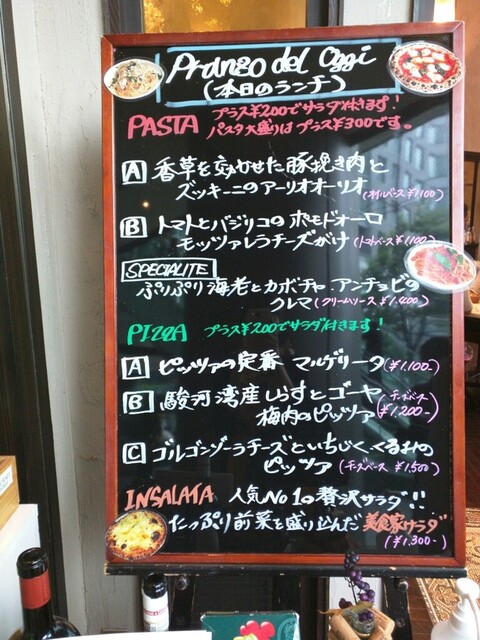 Pranzo del Oggi
(本日のランチ)
PASTA プラス¥200でサラダ付きます!
パスタ大盛りはプラス¥300です。
A 香草を効かせた豚挽き肉と
ズッキーニのアーリオオーリオ(オイルベース¥1100)
B トマトとバジリコのポモドーロ
モッツァレラチーズがけ(トマトベース¥1,100)
SPECIALITE
ぷりぷり海老とカボチャ、アンチョビの
クレマ(クリームソース¥1,400)
PIZZA プラス¥200でサラダ付きます!
A ピッツァの定番 マルゲリータ(¥1,100-)
B 駿河湾産しらすとゴーヤ (チーズベース
梅肉のピッツァ ¥1,200-)
C ゴルゴンゾーラチーズといちじく、くるみの
ピッツァ(チーズベース ¥1,500)
INSALATA 人気No1の贅沢サラダ!!
たっぷり前菜を盛り込んだ美食家サラダ
(¥1,300-)